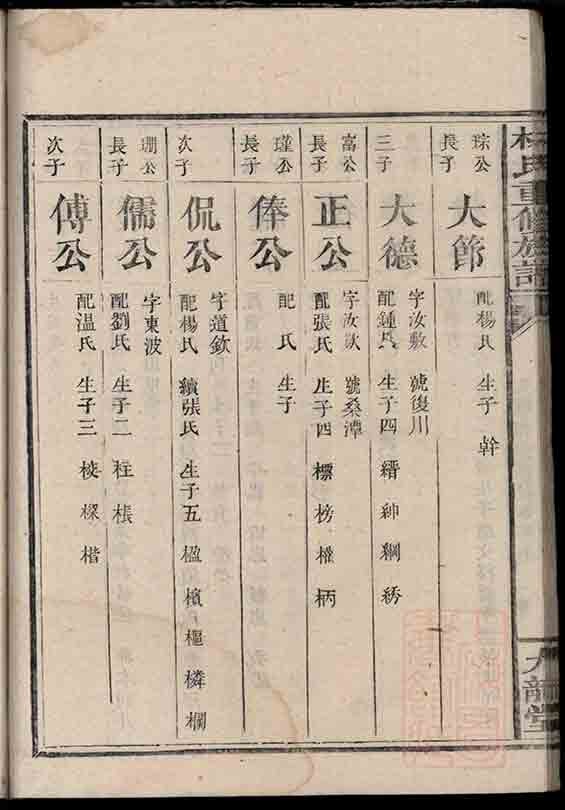 氏重修族譜
六龍堂
琮公
長子
大節
配楊氏 生子 幹
三子
大德
字汝敷 號後川
配鍾氏 生子四 縉 紳 綱 綉
富公
長子
正公
字汝欽 號桑潭
配張氏 生子四 標 榜 權 柄
瑾公
長子
俸公
配 氏 生子
次子
侃公
字道欽
配楊氏 續張氏 生子五 楹 檳 樞 橉 欄
珊公
長子
儒公
字東波
配劉氏 生子二 柱 棖
次子
傅公
配温氏 生子三 棱 樑 楷